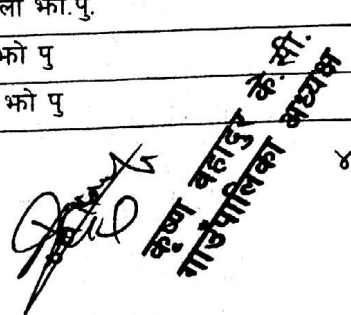 ला झो.पु.
झो पु
झो पु
कृष्ण बहादुर के.सी.
गाउँपालिका अध्यक्ष
४